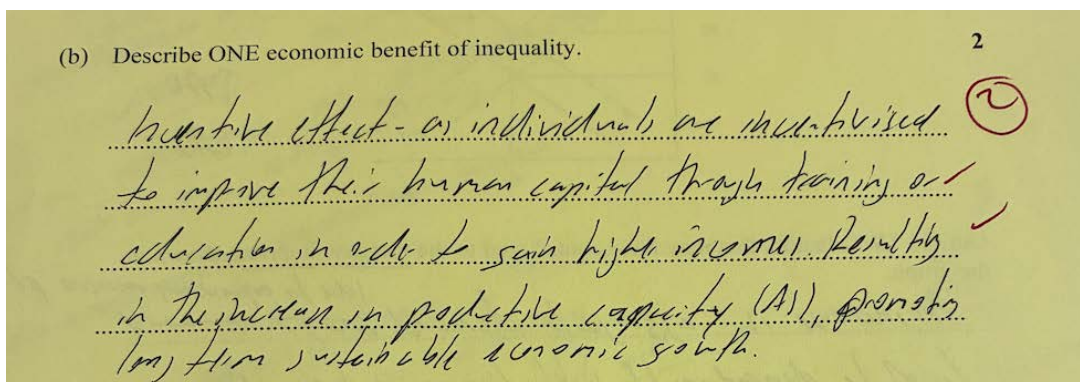 (b) Describe ONE economic benefit of inequality.
2
2
Incentive effect - as individuals are incentivised
to improve their human capital through training or
education in order to gain higher incomes. Resulting
in the increase in productive capacity (AS), promoting
long term sustainable economic growth.